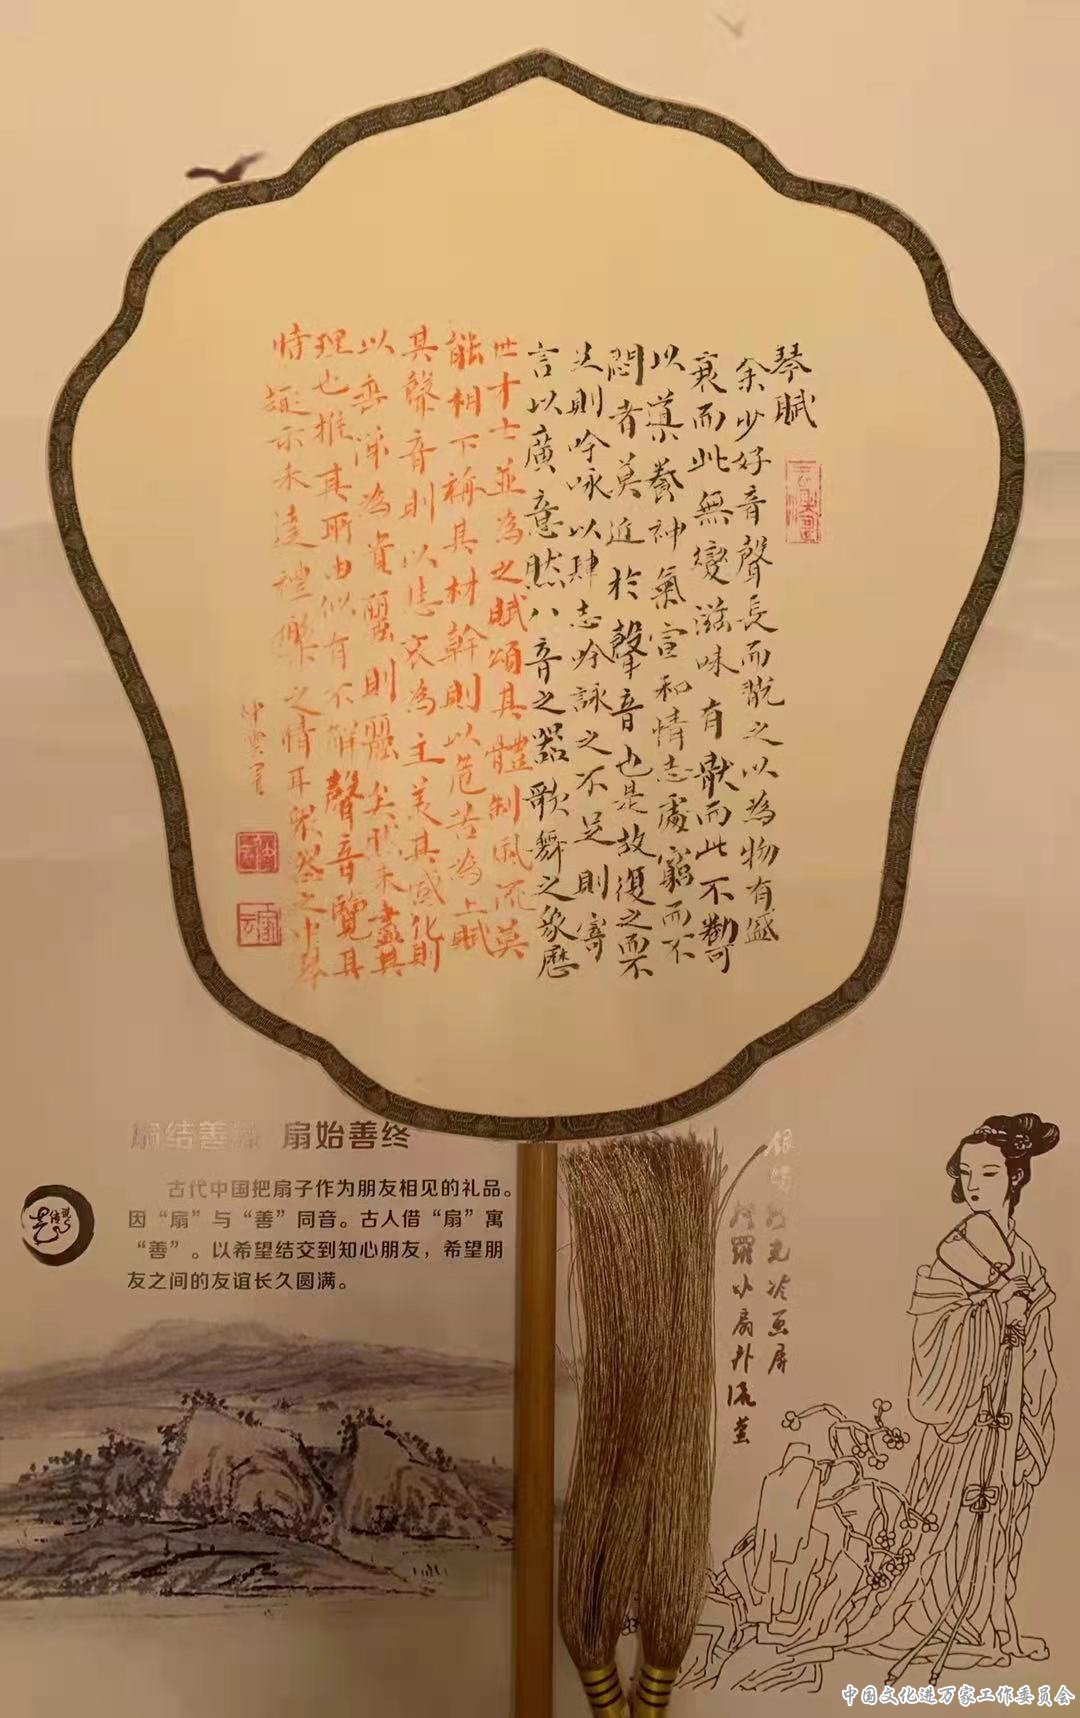 琴賦
余少好音聲長而翫之以為物有盛
衰而此無變滋味有猒而此不勌可
以導養神氣宣和情志處窮而不
悶者莫近於聲音也是故復之而不
足則吟咏以肆志吟詠之不足則寄
言以廣意然八音之器歌舞之象歷
世才士並為之賦頌其體制風流莫
能相下稱其材幹則以危苦為上賦
其聲音則以悲哀為主美其感化則
以垂涕為貴麗則麗矣然未盡其
理也推其所由似有不解聲音覽其
恉趣亦未達禮樂之情耳眾器之中琴
扇结善缘 扇始善终
古代中国把扇子作为朋友相见的礼品。
因“扇”与“善”同音。古人借“扇”寓
“善”。以希望结交到知心朋友，希望朋
友之间的友谊长久圆满。
银烛秋光冷画屏
轻罗小扇扑流萤
中国文化进万家工作委员会